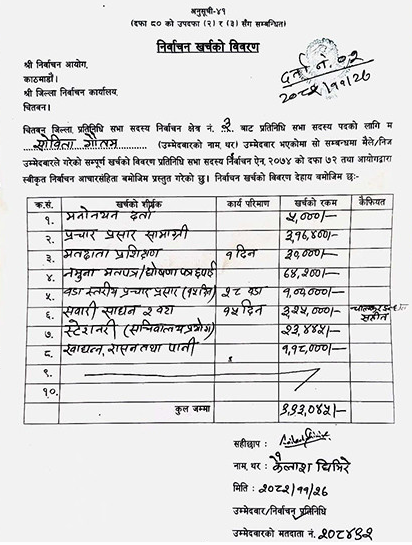 अनुसूची-४१
(दफा ८० को उपदफा (२) र (३) सँग सम्बन्धित)
निर्वाचन खर्चको विवरण
श्री निर्वाचन आयोग,
काठमाडौं।
श्री जिल्ला निर्वाचन कार्यालय,
चितवन।
दर्ता नं. ०२
२०८२/११/२६
चितवन जिल्ला प्रतिनिधि सभा सदस्य निर्वाचन क्षेत्र नं. ३ बाट प्रतिनिधि सभा सदस्य पदको लागि म
सोविता गौतम (उम्मेदवारको नाम, थर) उम्मेदवार भएकोमा सो सम्बन्धमा मैले/निज
उम्मेदवारले गरेको सम्पूर्ण खर्चको विवरण प्रतिनिधि सभा सदस्य निर्वाचन ऐन, २०७४ को दफा ७२ तथा आयोगद्वारा
स्वीकृत निर्वाचन आचारसंहिता बमोजिम प्रस्तुत गरेको छु। निर्वाचन खर्चको विवरण देहाय बमोजिम छः
क्र.सं. खर्चको शीर्षक कार्य परिमाण खर्चको रकम कैफियत
१. मनोनयन दर्ता ५,०००/-
२. प्रचार प्रसार सामाग्री ३,१६,४००/-
३. मतदाता प्रशिक्षण १ दिन ३०,०००/-
४. नमुना मतपत्र/घोषणा पत्र ६४,२००/-
५. वडा स्तरीय प्रचार प्रसार (१५ दिन) २८ वडा
६. सवारी साधन २ वटा १५ दिन ३,२५,०००/- सहित
७. स्टेशनरी (सचिवालय प्रयोग) २३,४४५/-
८. खाद्यान्न, रासन तथा पानी १,१८,०००/-
९.
१०.
कुल जम्मा
सहीछाप :
नाम, थर : कैलाश घिमिरे
मिति : २०८२/११/२६
उम्मेदवार/निर्वाचन प्रतिनिधि
उम्मेदवारको मतदाता नं.